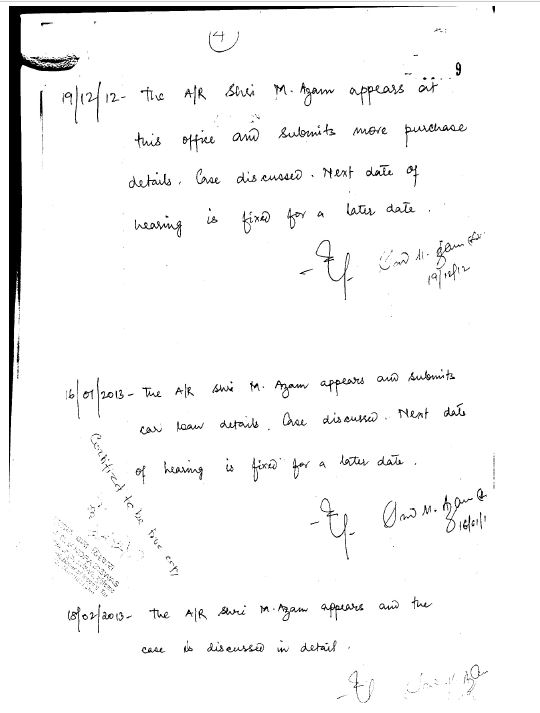 4
9
19/12/12 - The A/R Shri M. Azam appears at
this office and submits more purchase
details. Case discussed. Next date of
hearing is fixed for a later date.
M. Azam
19/12/12
16/01/2013 - The A/R Shri M. Azam appears and submits
car loan details. Case discussed. Next date
of hearing is fixed for a later date.
Certified to be true copy
M. Azam
16/01/1
18/02/2013 - The A/R Shri M. Azam appears and the
case is discussed in detail.